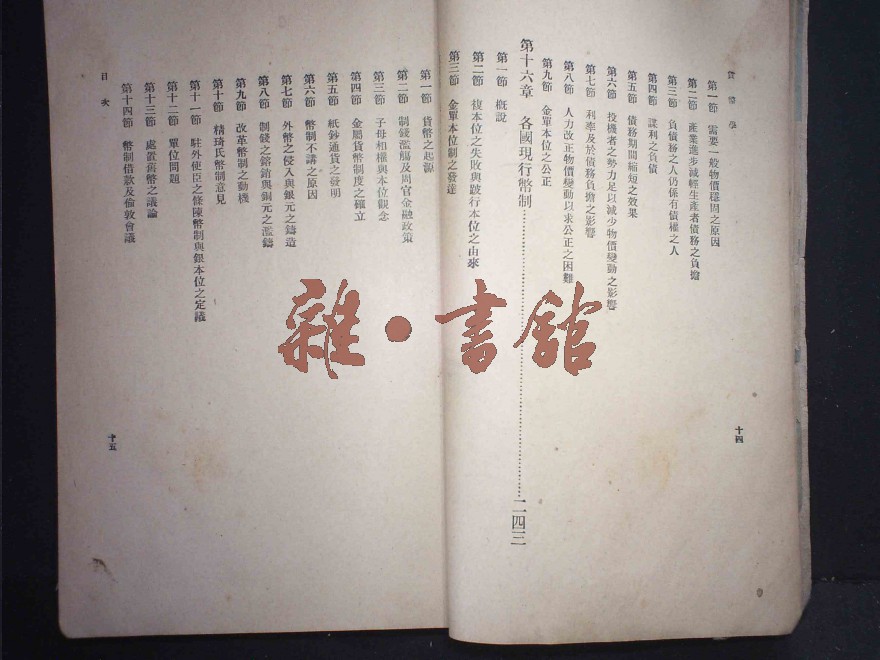 貨幣學
第一節 需要一般物價穩固之原因
第二節 產業進步減輕生產者債務之負擔
第三節 負債務之人仍係有債權之人
第四節 謀利之負債
第五節 債務期間縮短之效果
第六節 投機者之勢力足以減少物價變動之影響
第七節 利率及於債務負擔之影響
第八節 人力改正物價變動以求公正之困難
第九節 金單本位之公正
第十六章 各國現行幣制……二四三
第一節 槪說
第二節 複本位之失敗與跛行本位之由來
第三節 金單本位制之發達
十四
第一節 貨幣之起源
第二節 制錢濫觴及周官金融政策
第三節 子母相權與本位觀念
第四節 金屬貨幣制度之確立
第五節 紙鈔通貨之發明
第六節 幣制不講之原因
第七節 外幣之侵入與銀元之鑄造
第八節 制錢之鎔銷與銅元之濫鑄
第九節 改革幣制之動機
第十節 精琦氏幣制意見
第十一節 駐外使臣之條陳幣制與銀本位之定議
第十二節 單位問題
第十三節 處置舊幣之議論
第十四節 幣制借款及倫敦會議
目次
十五
雜·書館